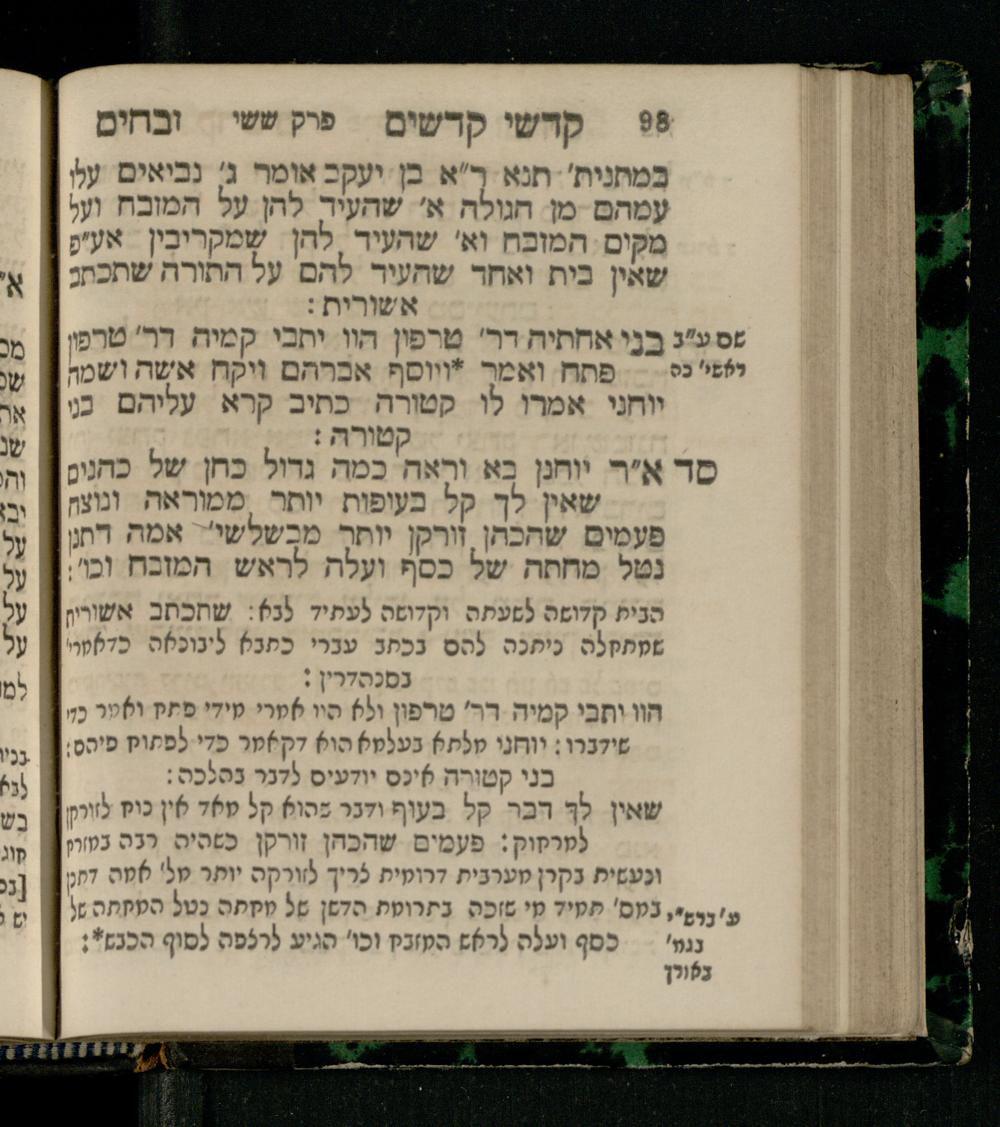 98 קדשי קדשים פרק ששי זבחים
במתנית׳ תנא ר״א בן יעקב אומר ג׳ נביאים עלו
עמהם מן הגולה א׳ שהעיד להן על המזבח ועל
מקום המזבח וא׳ שהעיד להן שמקריבין אע״פ
שאין בית ואחד שהעיד להם על התורה שתכתב
אשורית :
שם ע״ב בני אחתיה דר׳ טרפון הוו יתבי קמיה דר׳ טרפון
ראשי׳ כה פתח ואמר *ויוסף אברהם ויקח אשה ושמה
יוחני אמרו לו קטורה כתיב קרא עליהם בני
קטורה :
סד א״ר יוחנן בא וראה כמה גדול כחן של כהנים
שאין לך קל בעופות יותר ממוראה ונוצה
פעמים שהכהן זורקן יותר מבשלשי׳ אמה דתנן
נטל מחתה של כסף ועלה לראש המזבח וכו׳ :
הבית קדושה לשעתה וקדושה לעתיד לבא : שתכתב אשורית
שמתחלה ניתנה להם בכתב עברי כתבא ליבונאה כדאמרי׳
בסנהדרין :
הוו יתבי קמיה דר׳ טרפון ולא היו אמרי מידי פתח ואמר כדי
שידברו : יוחני מלתא בעלמא הוא דקאמר כדי לפתוח פיהם :
בני קטורה אינם יודעים לדבר בהלכה :
שאין לך דבר קל בעוף ודבר שהוא קל מאד אין כוח לזורקן
למרחוק : פעמים שהכהן זורקן כשהיה רבה במזרח
ונעשית בקרן מערבית דרומית צריך לזורקה יותר מל׳ אמה דתנן
במס׳ תמיד מי שזכה בתרומת הדשן של מחתה נטל המחתה של
כסף ועלה לראש המזבח וכו׳ הגיע לרצפה לסוף הכבש* :
ע׳ ברש״י
בגמ׳
באורך